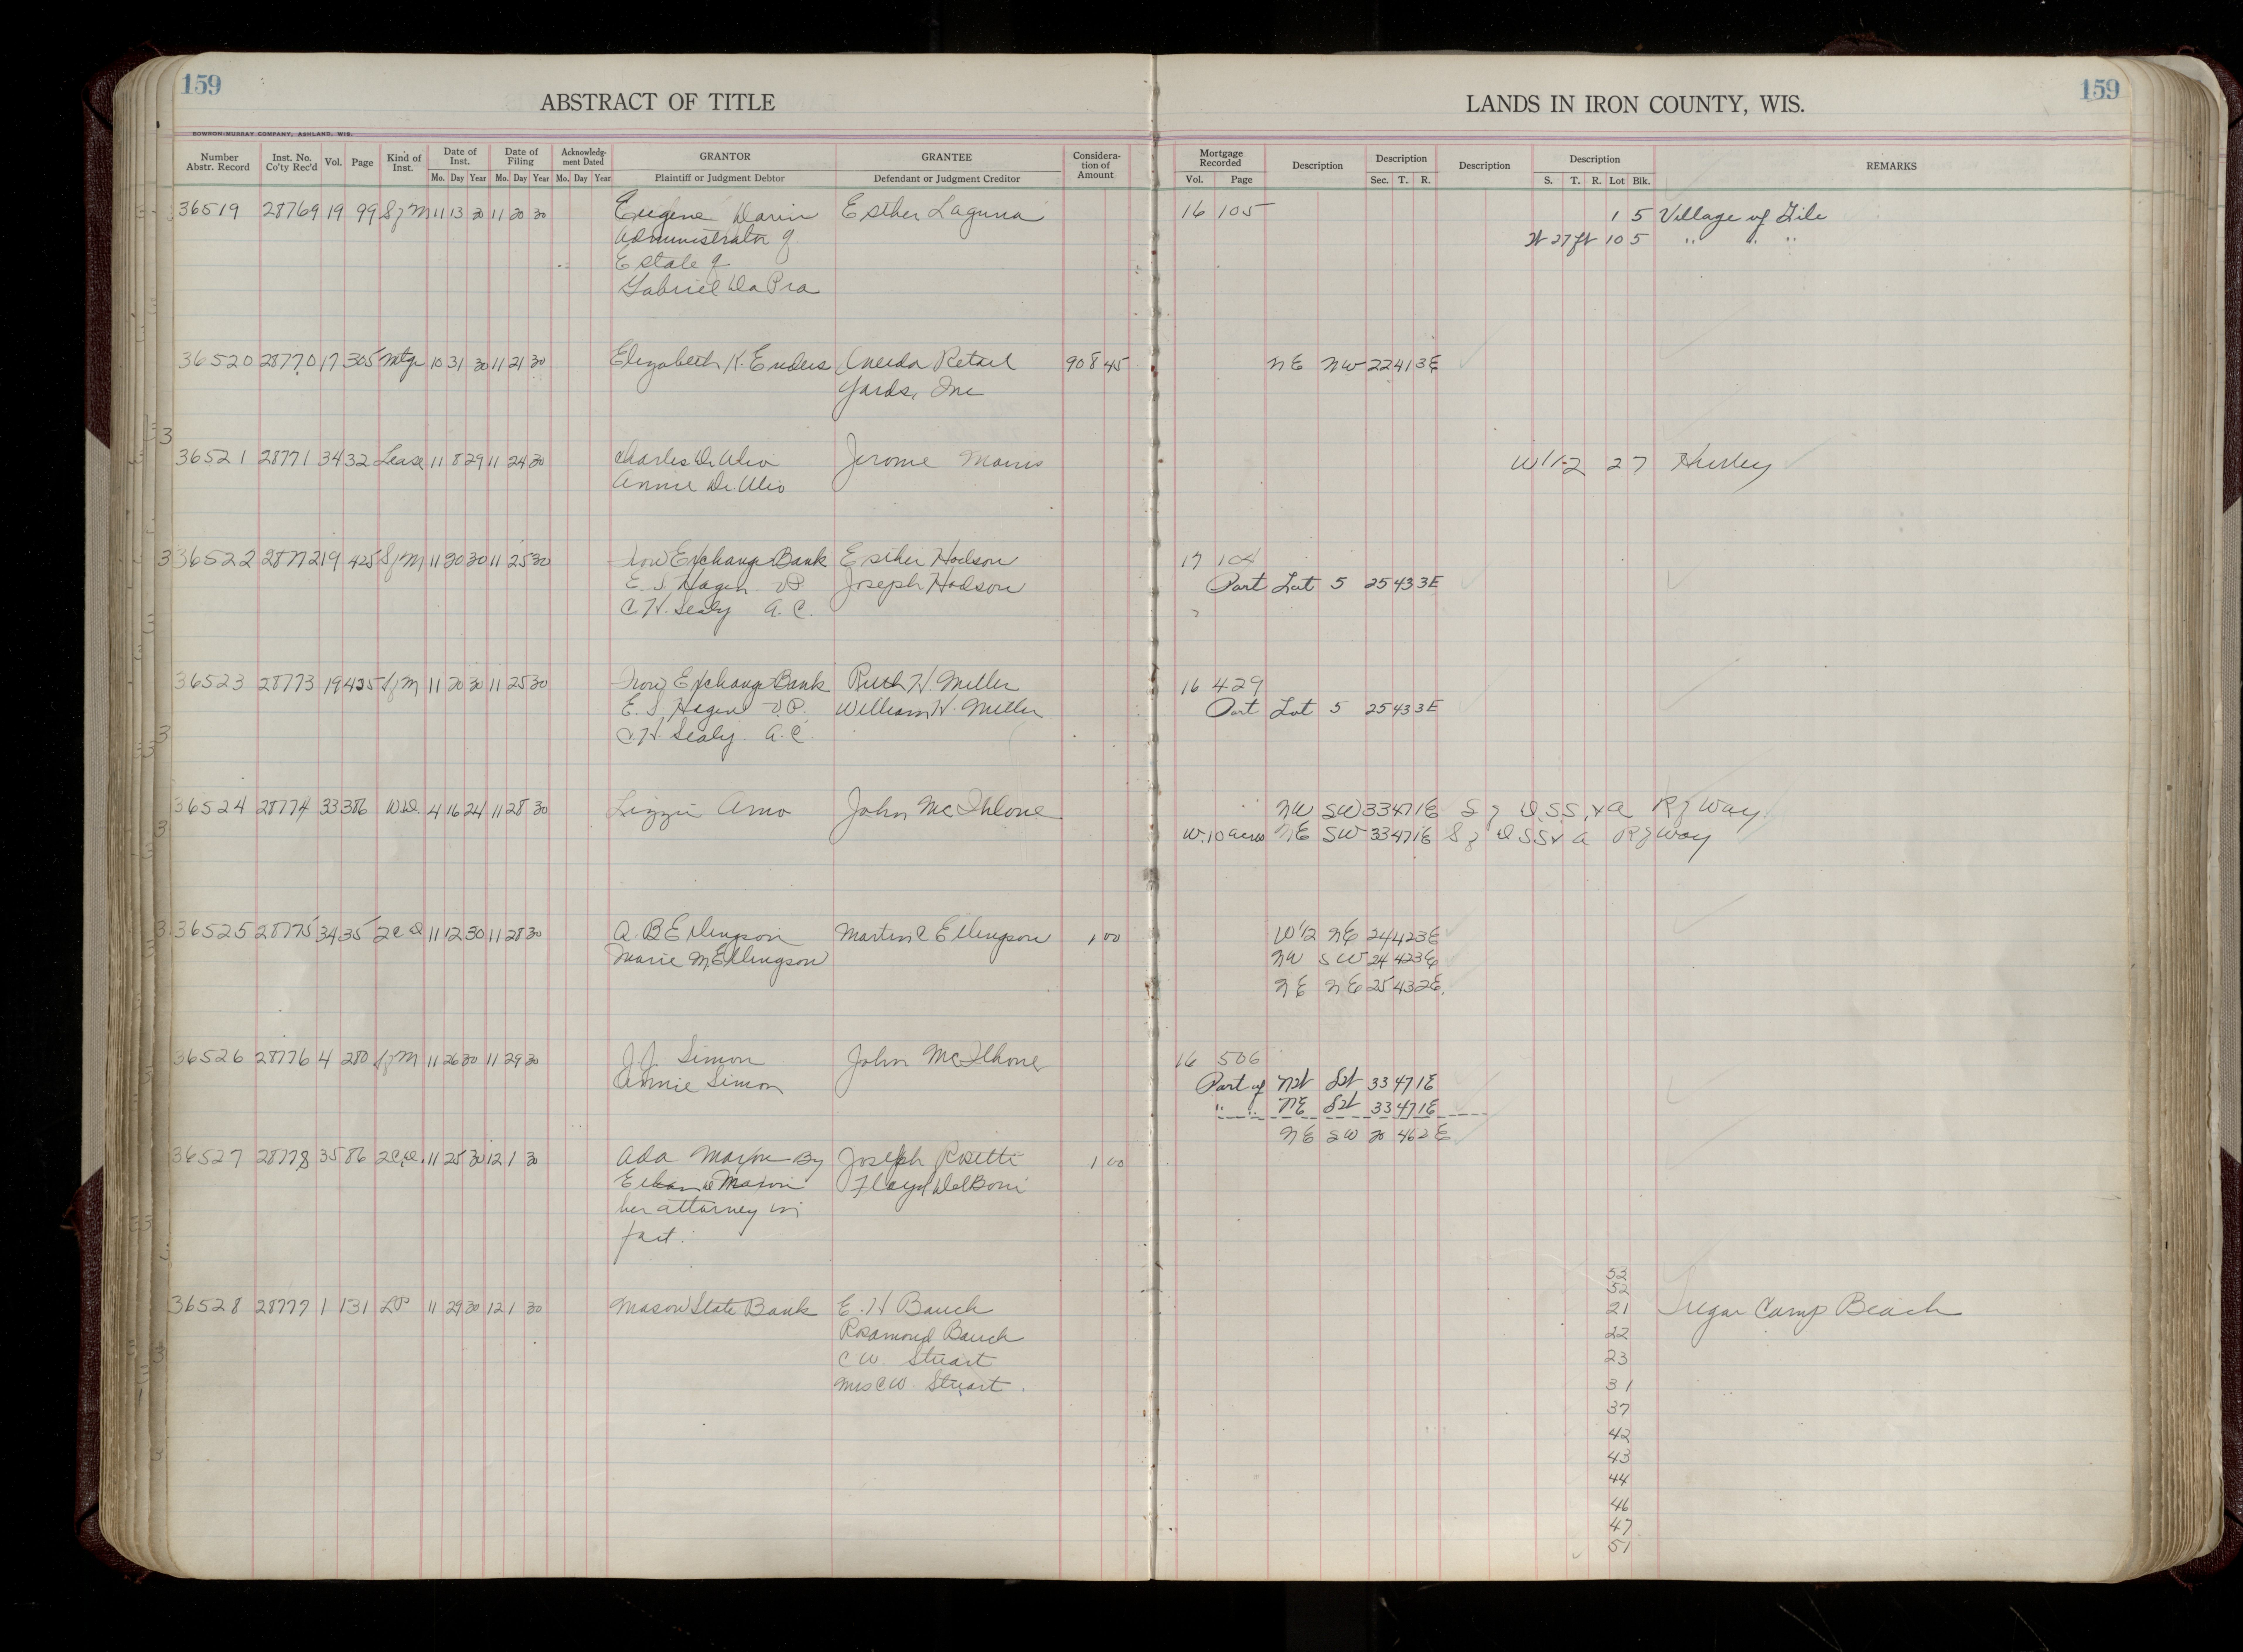 159
ABSTRACT OF TITLE
BOWRON-MURRAY COMPANY, ASHLAND, WIS.
Number Abstr. Record | Inst. No. Co'ty Rec'd | Vol. | Page | Kind of Inst. | Date of Inst. | Date of Filing | Acknowledg-ment Dated | GRANTOR | GRANTEE | Considera-tion of Amount
Mo. Day Year Mo. Day Year Mo. Day Year | Plaintiff or Judgment Debtor | Defendant or Judgment Creditor
36519 28769 19 99 SfM 11 13 30 11 20 30 Eugene Darin Esther Laguna
Administrator of
Estate of
Gabriel DaPra
36520 28770 17 305 Mtg 10 31 30 11 21 30 Elizabeth K. Enders Oneida Retail 908 45
Yards, Inc
36521 28771 34 32 Lease 11 8 29 11 24 30 Charles Jerome
Annie
36522 28772 19 425 SfM 11 20 30 11 25 30 Iron Exchange Bank Esther Hodson
E. S. Hagen V.P. Joseph Hodson
C. H. Sealy A. C.
36523 28773 19 425 SfM 11 20 30 11 25 30 Iron Exchange Bank Ruth H. Miller
E. S. Hagen V.P. William W. Miller
C. H. Sealy A. C.
36524 28774 33 386 WD. 4 16 24 11 28 30 Lizzie Arno John McIlhone
36525 28775 34 35 2CD 11 12 30 11 28 30 A. B Ellingson Martin C Ellingson 1 00
Marie M. Ellingson
36526 28776 4 280 SfM 11 26 30 11 29 30 J. J. Simon John McIlhone
Annie Simon
36527 28778 35 86 2CD. 11 25 30 12 1 30 Ada By Joseph Rosetti 1 00
Floyd DelBoni
her attorney in
fact.
36528 28777 1 131 LP 11 29 30 12 1 30 Mason State Bank E. H Bauch
Rosamond Bauch
C W. Stuart
Mrs C W. Stuart.
159
LANDS IN IRON COUNTY, WIS.
Mortgage Recorded | Description | Description | Description | Description | REMARKS
Vol. Page | Sec. T. R. | S. T. R. Lot Blk.
16 105 1 5 Village of Gile
W 27 ft 10 5 " " "
NE NW 22 41 3E
W 1/2 2 7 Hurley
17 104
Part Lot 5 25 43 3E
16 429
Part Lot 5 25 43 3E
NW SW 33 47 1E S of D.S.S. & A R of Way
W. 10 acres NE SW 33 47 1E S of D SS & A R of Way
W 1/2 NE 24 42 3E
NW SW 24 42 3E
NE NE 25 43 2E.
16 506
Part of NW SW 33 47 1E
" " NE SW 33 47 1E
NE SW 20 46 2E
52
52
21 Sugar Camp Beach
22
23
31
37
42
43
44
46
47
51